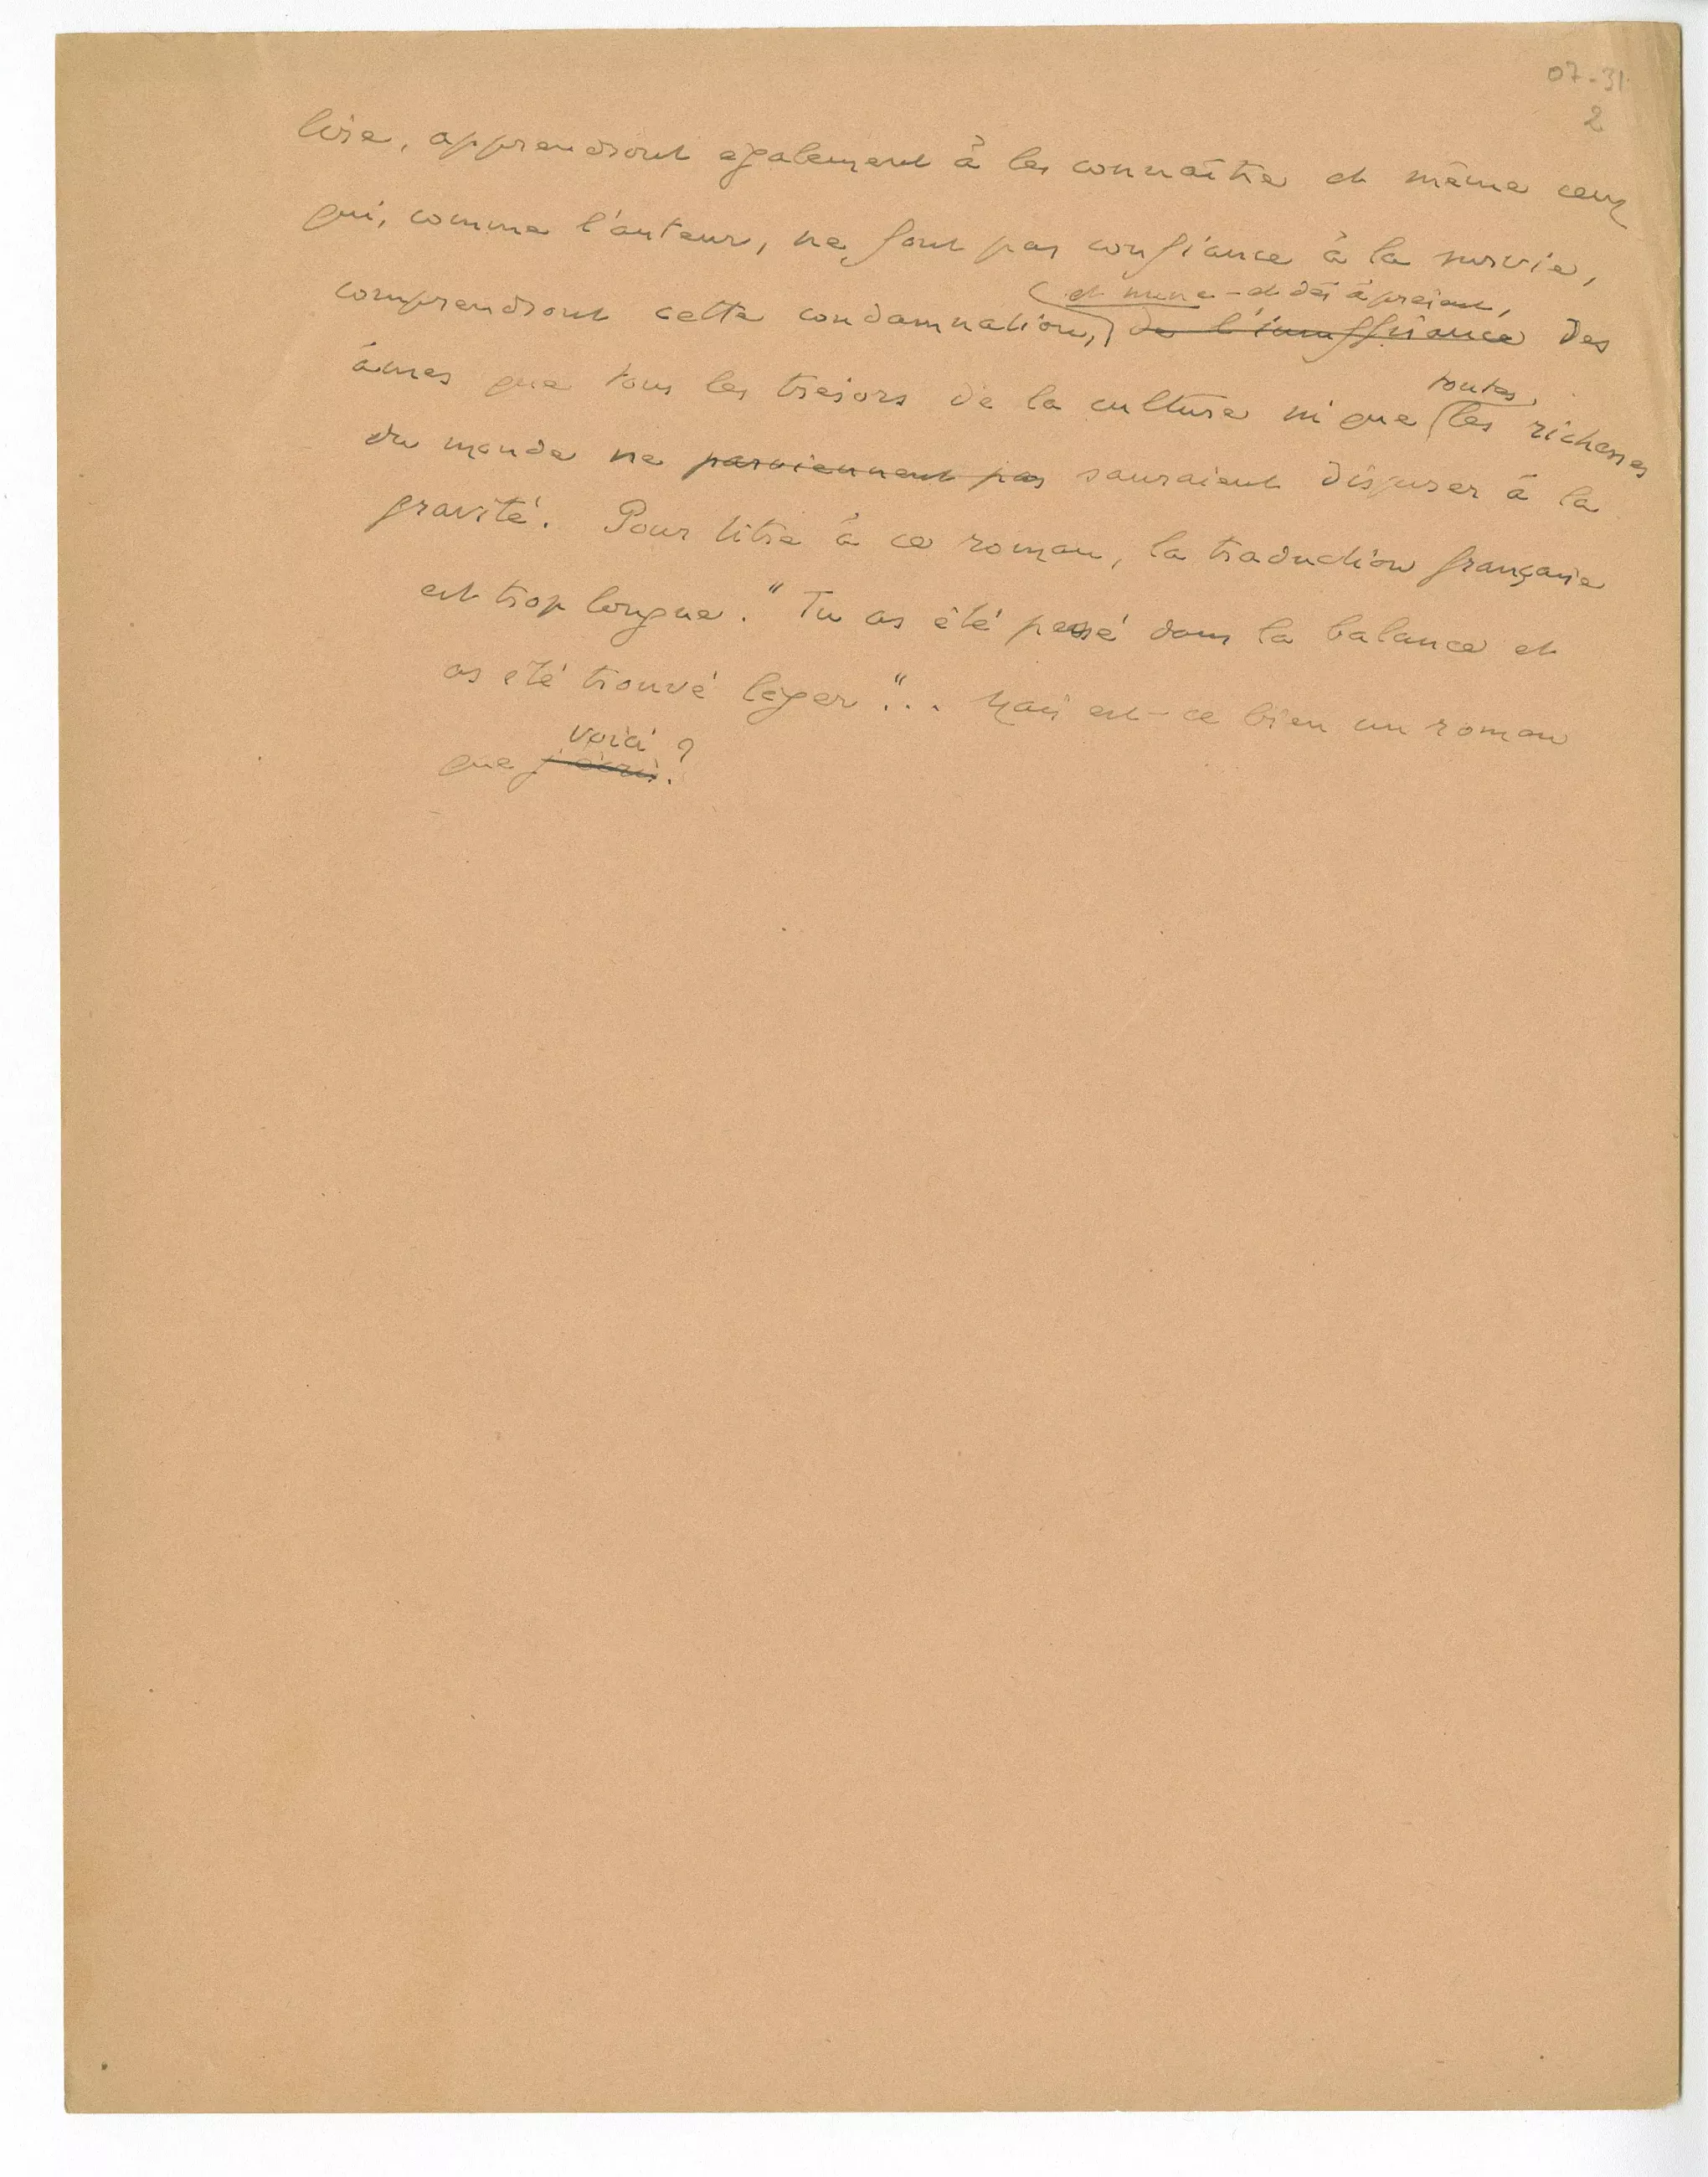 07-31
2
lire, apprendront également à les connaître et même ceux
qui, comme l'auteur, ne font pas confiance à la survie,
et nunc - et dès à présent,
comprendront cette condamnation, de l'insuffisance des
toutes
âmes que tous les trésors de la culture ni que les richesses
du monde ne parviennent pas sauraient disposer à la
gravité. Pour titre à ce roman, la traduction française
est trop longue. "Tu as été pesé dans la balance et
as été trouvé léger"... Mais est-ce bien un roman
voici ?
que j'écris ?